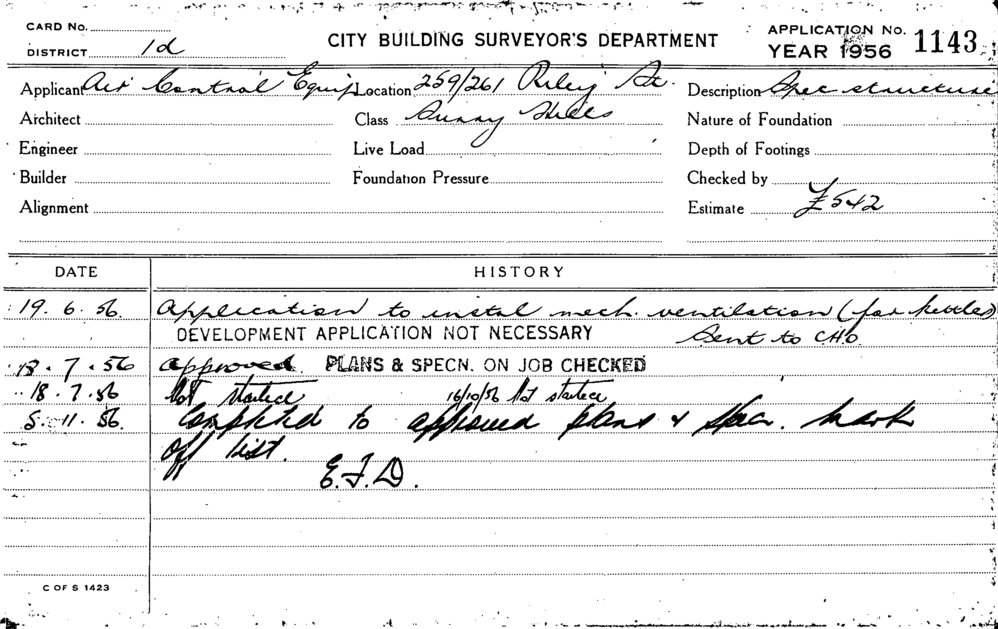 CARD No.
DISTRICT 1d
CITY BUILDING SURVEYOR'S DEPARTMENT
APPLICATION No. 1143
YEAR 1956
Applicant Air Control Equip Location 259/261 Riley St. Description Spec structure
Architect Class Surry Hills Nature of Foundation
Engineer Live Load Depth of Footings
Builder Foundation Pressure Checked by
Alignment Estimate £542
DATE HISTORY
19. 6. 56. Application to instal mech. ventilation (for kettles)
DEVELOPMENT APPLICATION NOT NECESSARY Sent to CHO
13. 7. 56 approved. PLANS & SPECN. ON JOB CHECKED
18. 7. 56 Not started 16/10/56 Not started
5. 11. 56. Completed to approved plans & spec. Mark
off list.
E.J.D.
C OF S 1423